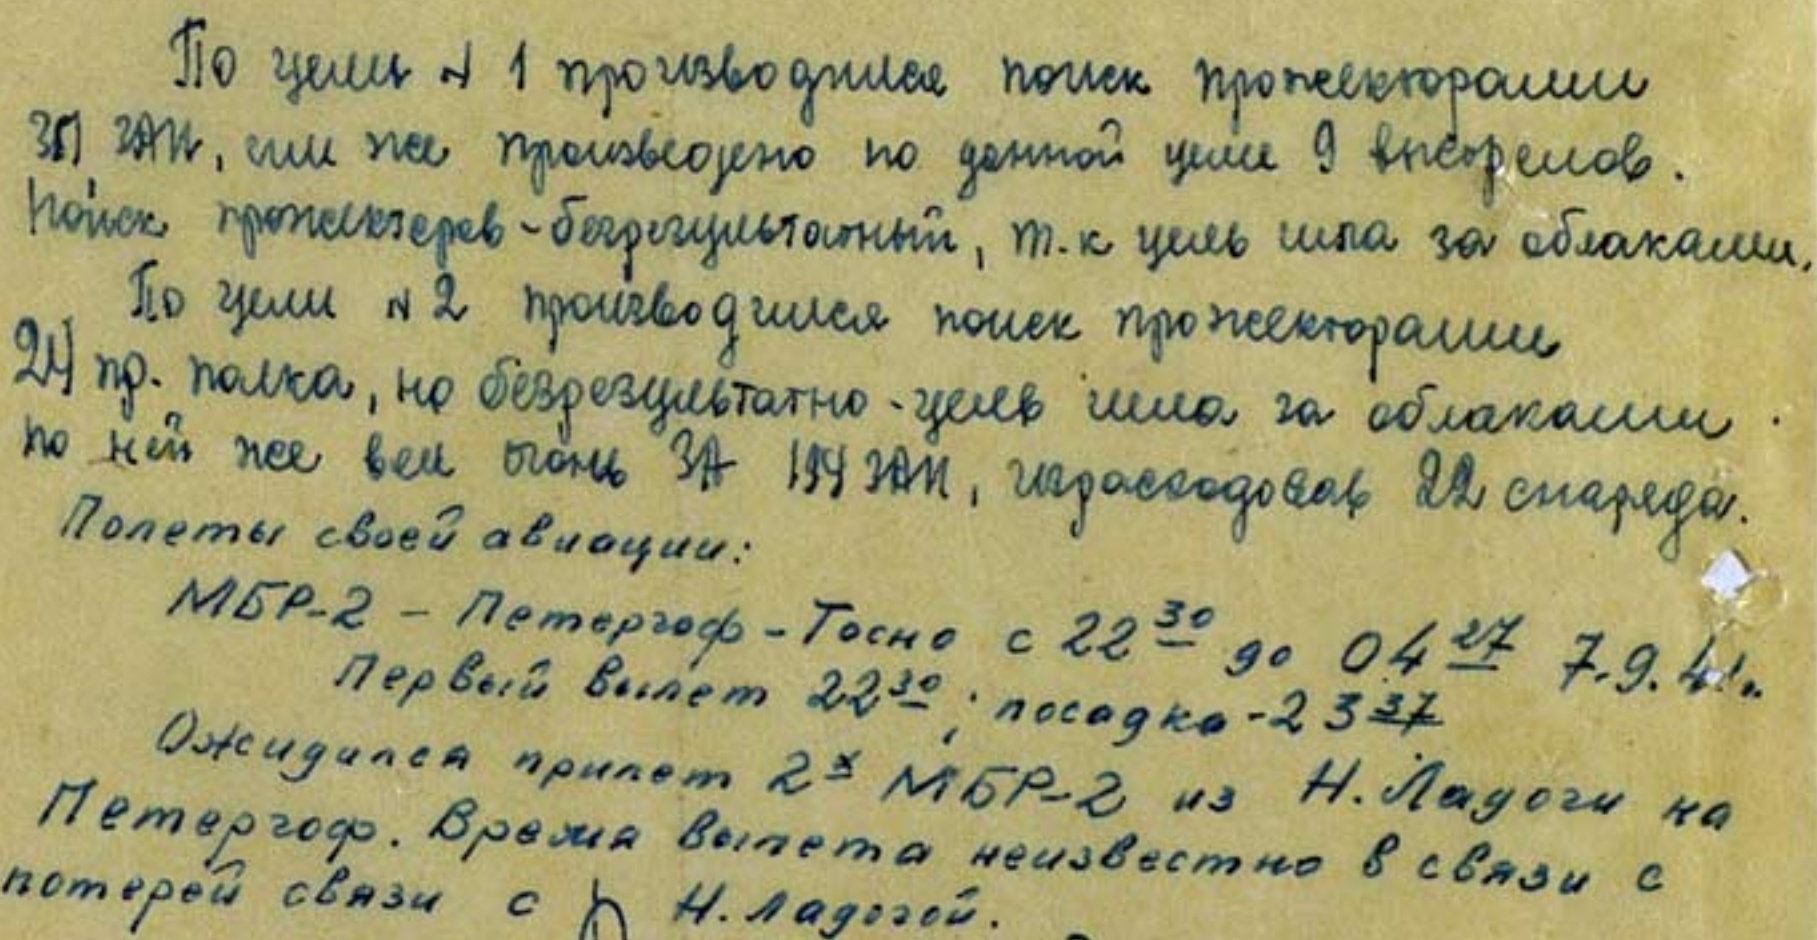 По цели № 1 производился поиск прожекторами
351 ЗАП, им же произведено по данной цели 9 выстрелов.
Поиск прожекторов - безрезультатный, т.к цель шла за облаками.
По цели № 2 производился поиск прожекторами
24 пр. полка, но безрезультатно - цель шла за облаками.
по ней же вел огонь ЗА 194 ЗАП, израсходовав 22 снаряда.
Полеты своей авиации:
МБР-2 - Петергоф - Тосно с 22 30 до 04 27 7.9.41г.
Первый вылет 22 30; посадка - 23 37
Ожидался прилет 2х МБР-2 из Н. Ладоги на
Петергоф. Время вылета неизвестно в связи с
потерей связи с Н. Ладогой.